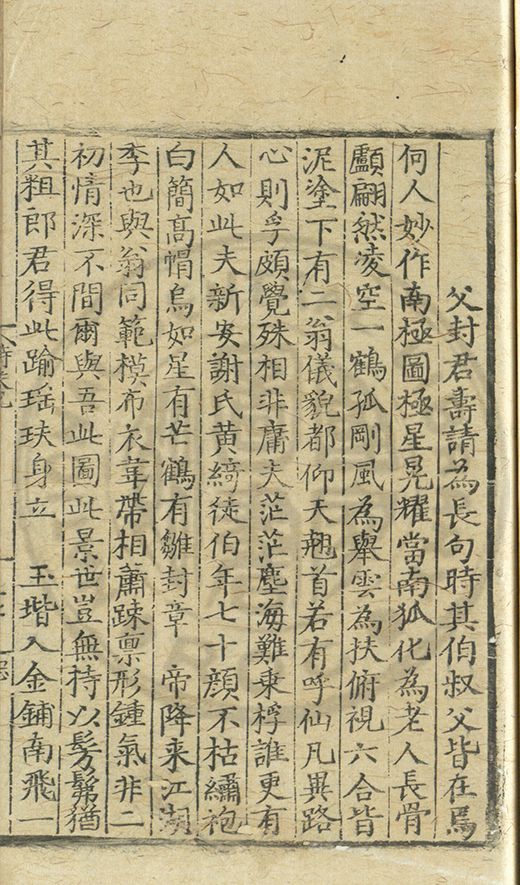 父封君壽請為長句時其伯叔父皆在焉
何人妙作南極圖極星晃耀當南狐化為老人長骨
顱翩然凌空一鶴孤剛風為轝雲為扶俯視六合皆
泥塗下有二翁儀貌都仰天翹首若有呼仙凡異路
心則孚頗覺殊相非庸夫茫茫塵海難乘桴誰更有
人如此夫新安謝氏黃綺徒伯年七十顔不枯繡袍
白簡高帽烏如星有芒鶴有雛封章 帝降来江湖
李也與翁同範模布衣韋帶相蕭踈稟形鍾氣非二
初情深不間爾與吾此圖此景世豈無持以髣髴猶
其粗郎君得此踰瑶玞身立 玉堦入金鋪南飛一